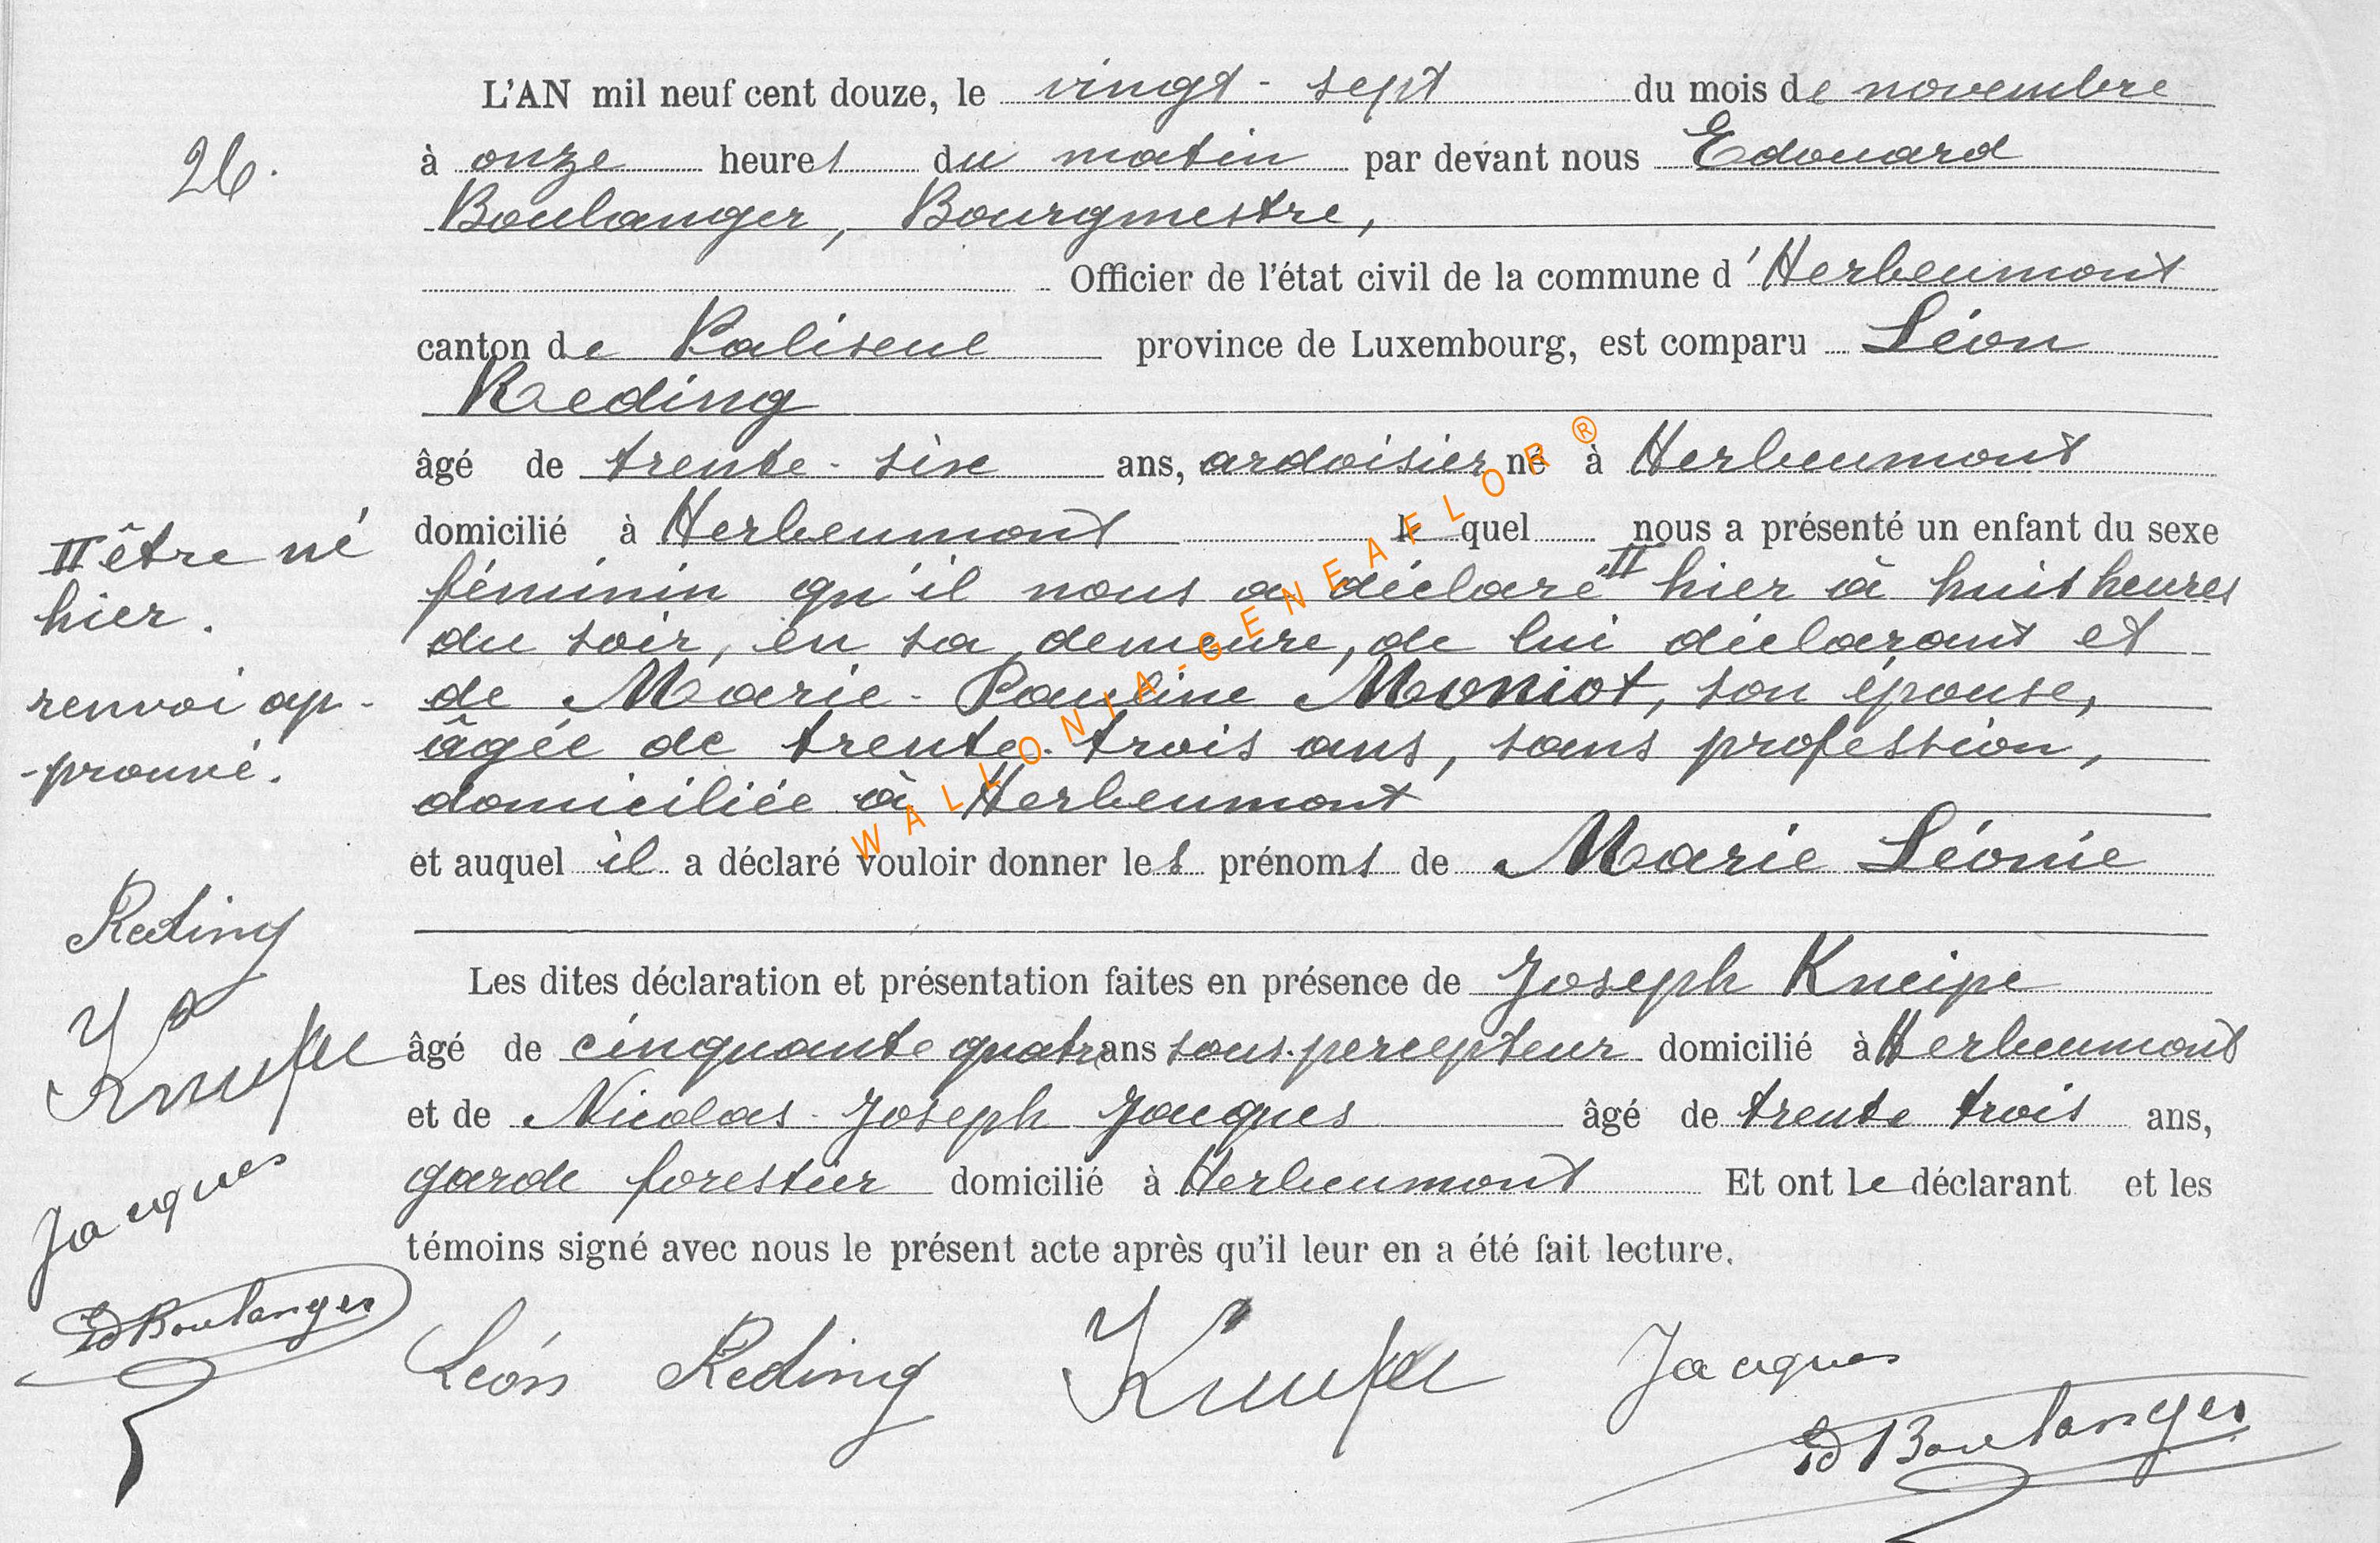 L'AN mil neuf cent douze, le vingt-sept du mois de novembre
26.
à onze heures du matin par devant nous Edouard
Boulanger, Bourgmestre,
Officier de l'état civil de la commune d'Herbeumont
canton de Paliseul province de Luxembourg, est comparu Léon
Reding
âgé de trente-six ans, ardoisier né à Herbeumont
domicilié à Herbeumont lequel nous a présenté un enfant du sexe
féminin qu'il nous a déclaré II hier à huit heures
du soir, en sa demeure, de lui déclarant et
de Marie-Pauline Moniot, son épouse,
âgée de trente-trois ans, sans profession,
domiciliée à Herbeumont
et auquel il a déclaré vouloir donner les prénoms de Marie Léonie
Les dites déclaration et présentation faites en présence de Joseph Kneipe
âgé de cinquante quatre ans sous-percepteur domicilié à Herbeumont
et de Nicolas-Joseph Jacques âgé de trente trois ans,
garde forestier domicilié à Herbeumont Et ont le déclarant et les
témoins signé avec nous le présent acte après qu'il leur en a été fait lecture.
II être né
hier.
renvoi ap-
-prouvé.
Reding
Kneipe
Jacques
Ed Boulanger
Léon Reding Kneipe Jacques
Ed Boulanger
WALLONIA-GENEAFLOR ®